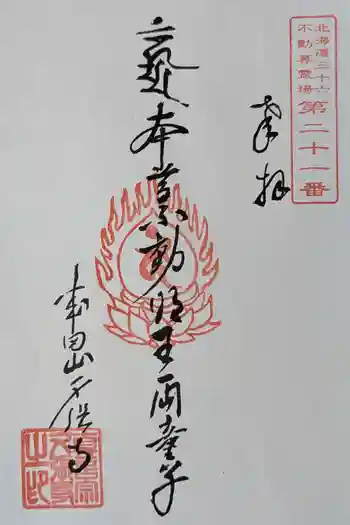 北海道三十六
不動尊霊場
第二十一番
奉拝
本尊不動明王両童子
成田山